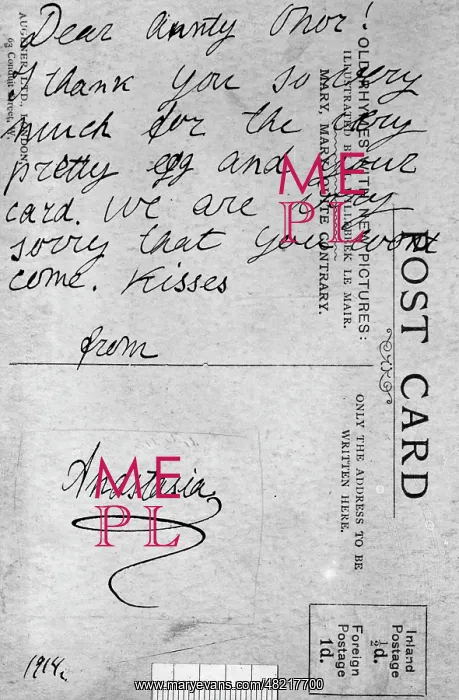 Dear Aunty Onor!
I thank you so very
much for the very
pretty egg and your
card. We are very
sorry that you wont
come. Kisses
from
Anastasia
1914.
OLD RHYMES WITH NEW PICTURES:
ILLUSTRATED BY LE MAIR.
MARY, MARY, QUITE CONTRARY.
AUGENER LTD., LONDON,
63 Conduit Street, W.
POST CARD
ONLY THE ADDRESS TO BE
WRITTEN HERE.
Inland
Postage
½d.
Foreign
Postage
1d.
ME
PL
ME
PL
www.maryevans.com/48217700